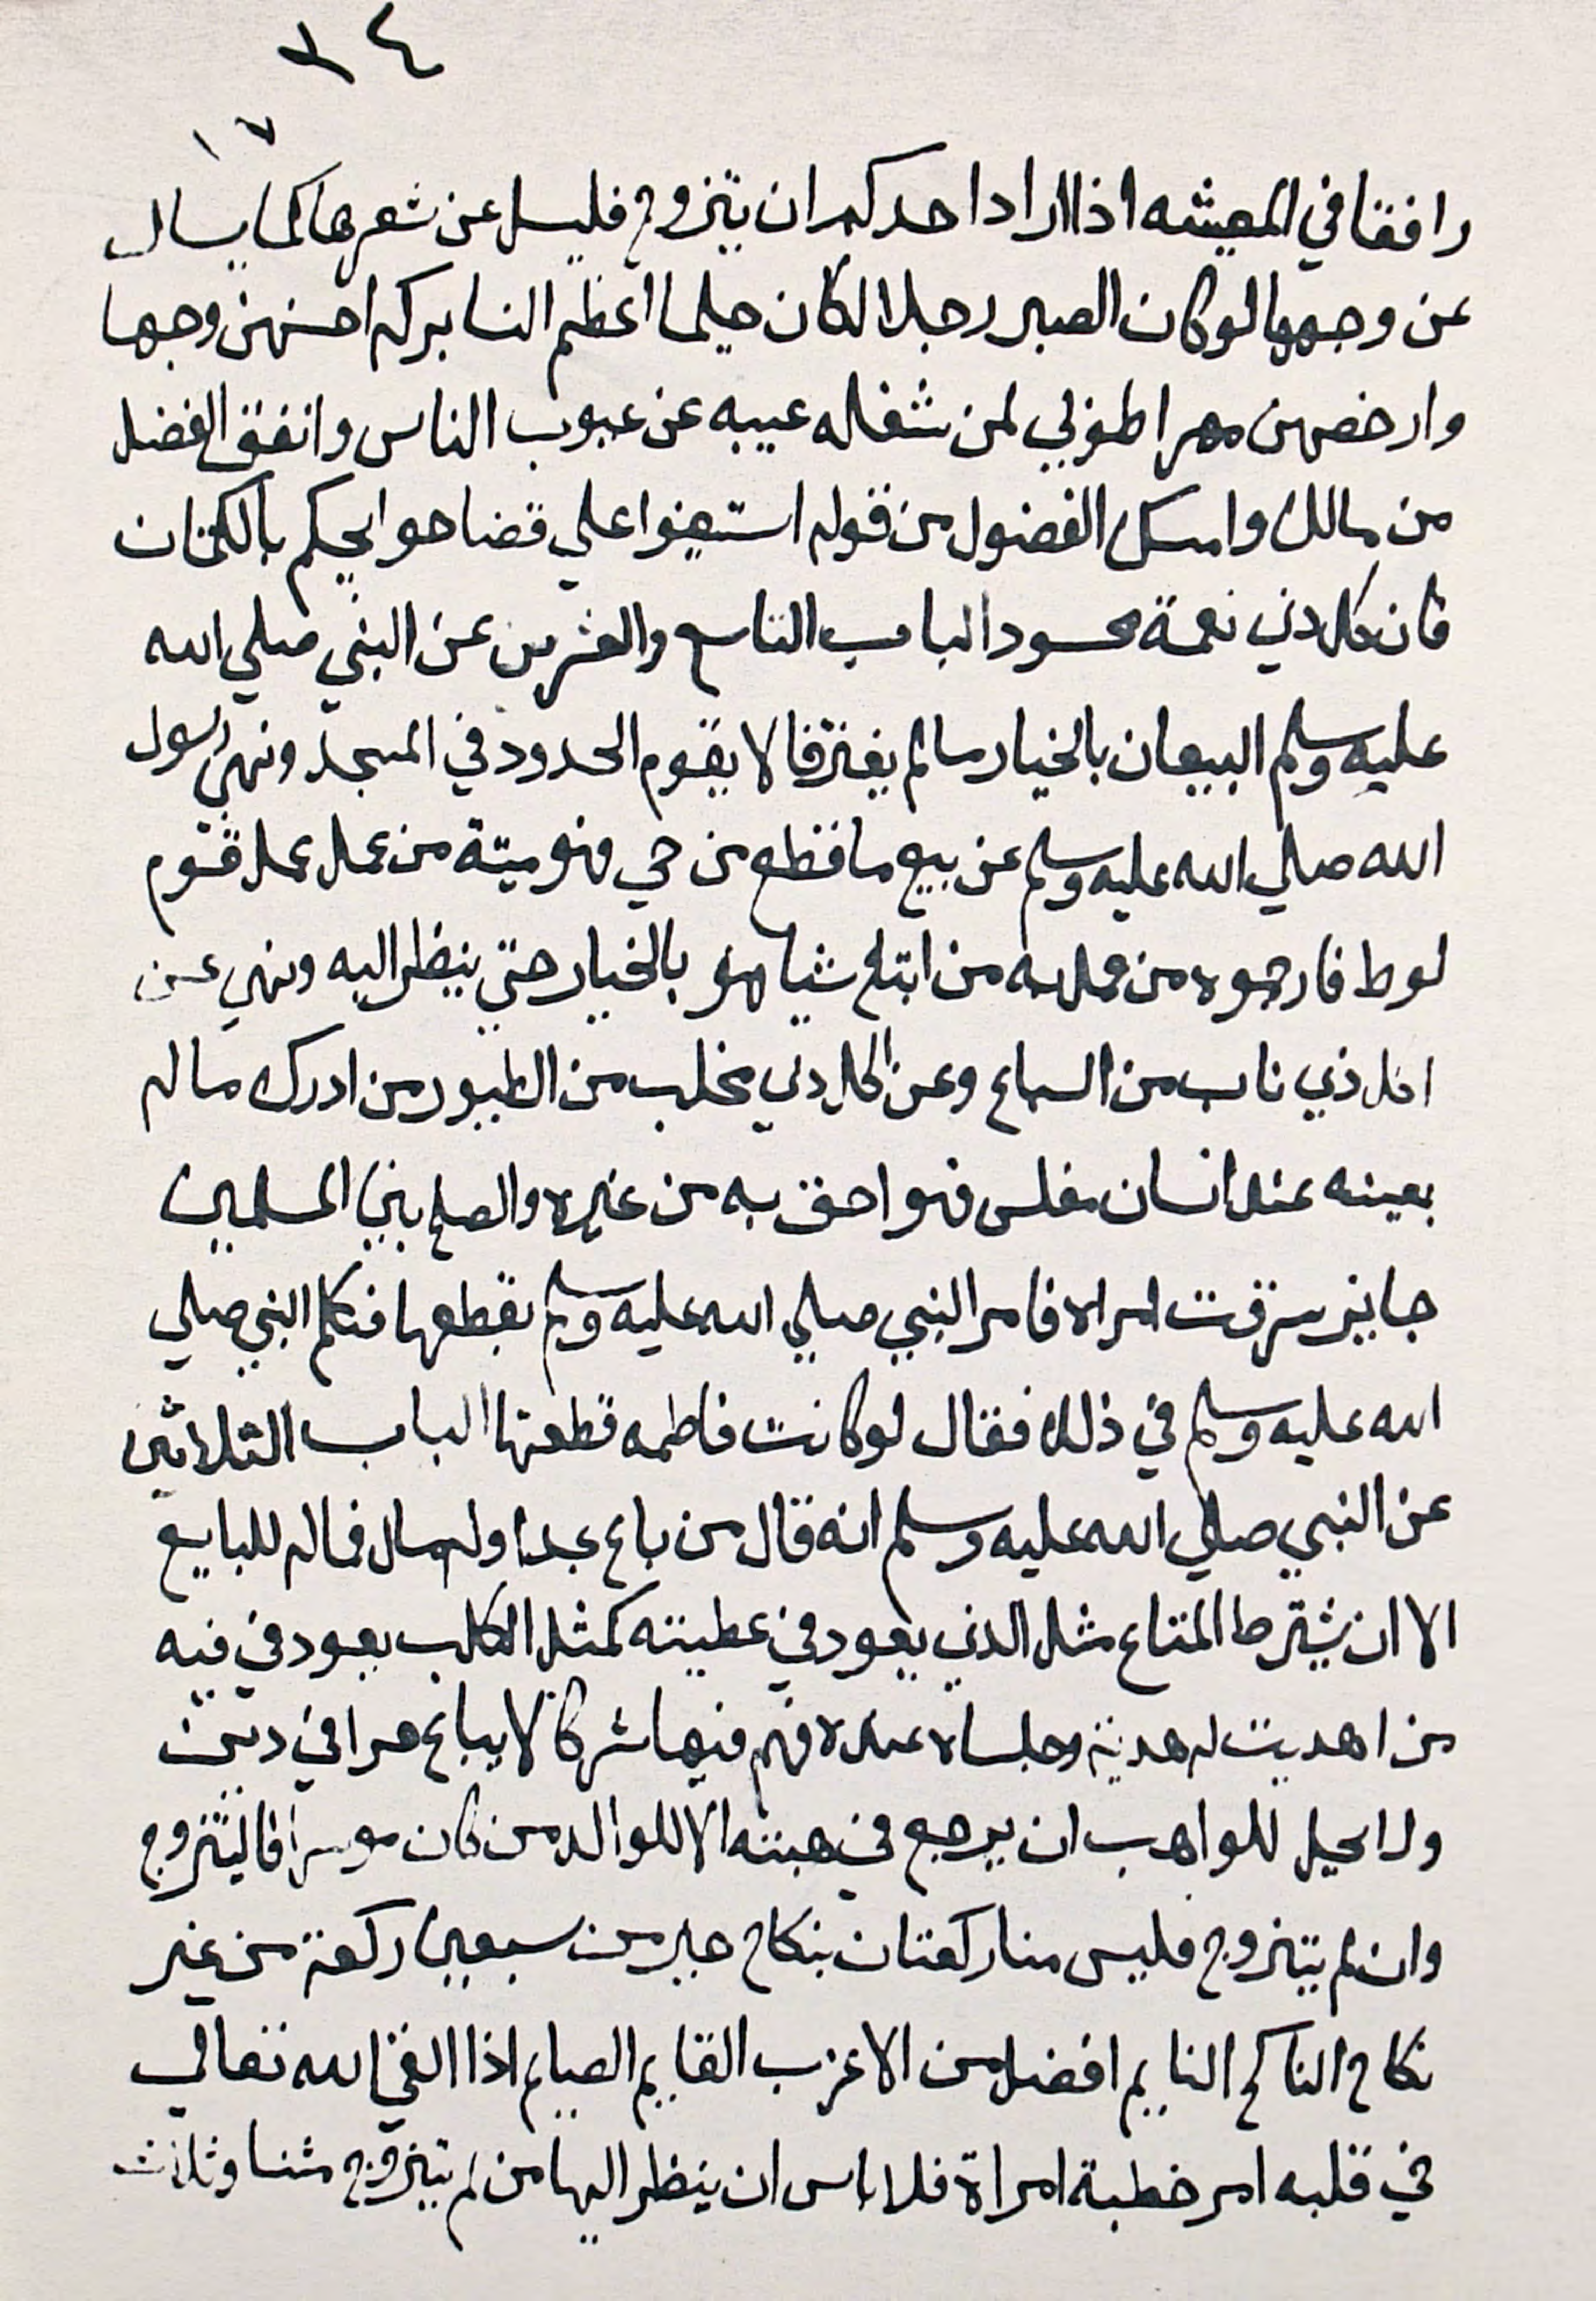 ٣٤
١٧
رافقا في المعيشه اذا اراد احدكم ان يتزوج فليسل عن شعرها كما يسال
عن وجهها لو كان الصبر رجلا لكان حليما اعظم النسا بركه احسنهن وجها
وارخصهن مهرا طوبي لمن شغله عيبه عن عيوب الناس وانفق الفضل
من مالك وامسك الفضول من قوله استعينوا علي قضا حوايجكم بالكتمان
فان كل ذي نعمة محسود الباب التاسع والعشرين عن النبي صلي الله
عليه وسلم البيعان بالخيار مالم يفترقا لا يقوم الحدود في المسجد ونهي رسول
الله صلي الله عليه وسلم عن بيع ما قطع من حي فهو ميتة من عمل عمل قوم
لوط فارجموه من ابتاع شيا فهو بالخيار حتي ينظر اليه ونهي عن
اكل ذي ناب من السباع وعن اكل ذي مخلب من الطيور من ادرك ماله
بعينه عند انسان مفلس فهو احق به من غيره والصلح بين المسلمين
جايز سرقت امراه فامر النبي صلي الله عليه وسلم بقطعها فتكلم النبي صلي
الله عليه وسلم في ذلك فقال لو كانت فاطمه قطعتها الباب الثلاثين
عن النبي صلي الله عليه وسلم انه قال من باع عبدا وله مال فماله للبايع
الا ان يشترط المتاع مثل الذي يعود في عطيته كمثل الكلب يعود في فيه
من اهديت له هدية وجلساه عنده فهم فيها شركا لا يباع حرا في دين
ولا يحل للواهب ان يرجع في هبته الا للوالد من كان موسرا فاليتزوج
وان لم يتزوج فليس منا ركعتان بنكاح خير من سبعين ركعة من غير
نكاح الناكح النايم افضل من الاعزب القايم الصايم اذا القي الله تعالي
في قلبه امر خطبة امراة فلا باس ان ينظر اليها من لم يتزوج مثنا وثلاث